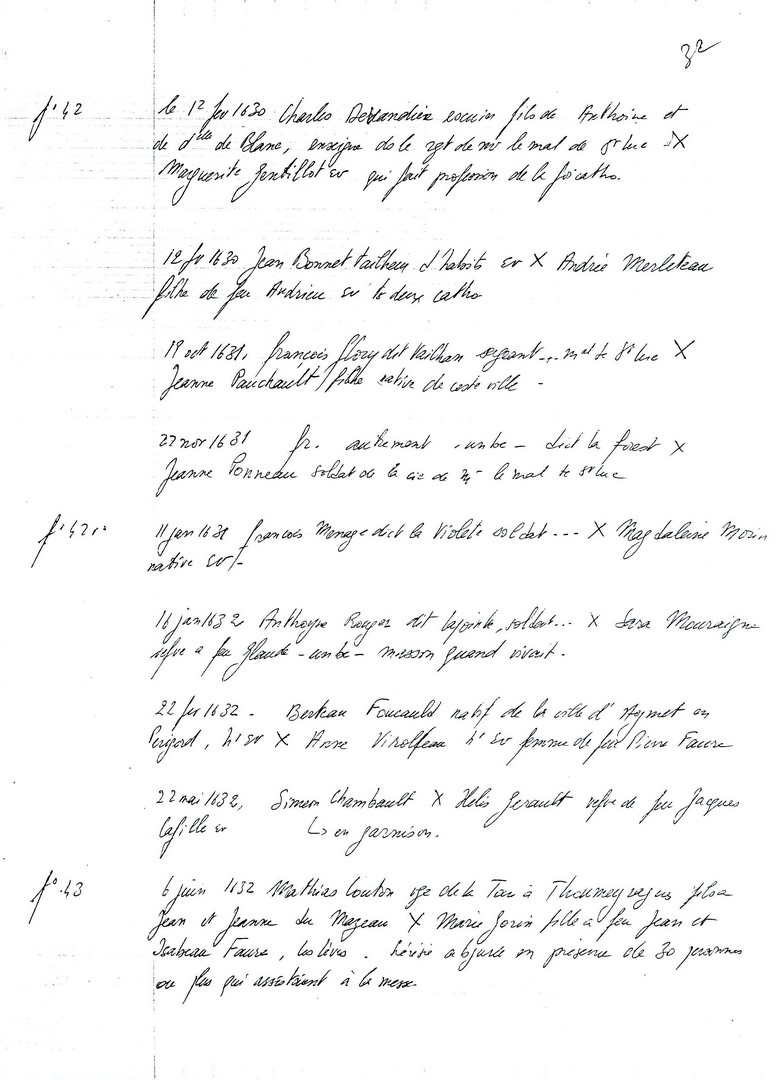 32
f° 42
le 12 fev 1630 Charles escuier fils de Anthoine et
de dlle de Blanc, enseigne ds le rgt de mr le mal de St Luc X
Marguerite Gentillot sv qui fait profession de la foi catho.
12 fv 1630 Jean Bonnet tailheur d'habits sv X Andrée Merleteau
filhe de feu Andrieu sv ts deux catho
19 oct 1631, françois flory dit Vailhan sergant ... mal de St Luc X
Jeanne Pauchault / filhe native de ceste ville -
27 nov 1631 fr. autrement - dict la forest X
Jeanne Ponneau soldat de la cie de mr le mal de St Luc
f° 42 v°
11 jan 1631 francois Menage dict la Violete soldat --- X Magdaleine Morin
native sv /-
16 jan 1632 Anthoyne Rouger dit lapointe, soldat... X Sara Mouraigne
vefve a feu Glaude - masson quand vivait.
22 fev 1632 - Berteau Foucauld natif de la ville d'Aymet en
Perigord, ht sv X Anne Virolleau ht sv femme de feu Pierre Faure
22 mai 1632, Simeon Chambault X Helis Gerault vefve de feu Jacques
Lafille sv ↳ en garnison.
f° 43
6 juin 1632 Mathias Couton sge de la Tour à Thoumeyragues fils a
Jean et Jeanne du Mazeau X Marie Jorin fille a feu Jean et
Isabeau Faure, les lèves. hérésie abjurée en présence de 30 personnes
ou plus qui assistaient à la messe